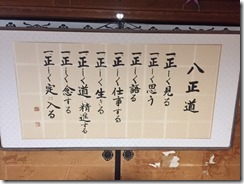 八正道
一、正しく見る
一、正しく思う
一、正しく語る
一、正しく仕事する
一、正しく生きる
一、正しく道に精進する
一、正しく念する
一、正しく定に入る